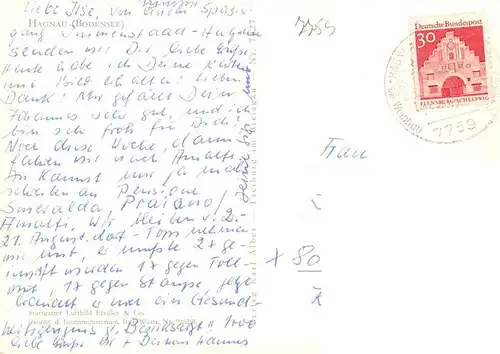 Liebe Ilse, von einem Spazier-
HAGNAU (BODENSEE)
gang Immenstaad - Hagnau
senden wir Dir liebe Grüße.
Heute habe ich Deine Karte
und Bild erhalten! Lieben
Dank! Mir gefällt Dein
Johannes sehr gut, und ich
bin sehr froh für Dich!
Noch diese Woche, dann
fahren wir nach Amalfi.
Du kannst mir ja mal
schreiben an Pensione
Smeralda, Praiano/
Amalfi. Wir bleiben v. 2.-
21. August dort - Topsy nehmen
wir mit, er mußte 2x ge-
impft werden 1x gegen Toll-
wut, 1x gegen Staupe, jetzt
braucht er nur ein Gesund-
Stuttgarter Luftbild Elsäßer & Co.
heitszeugnis d. Bezirksarzt! 1000
liebe Grüße Dir + Deinem Hannes
Deine
Verlag Karl Alber Freiburg im Breisgau
7759
Deutsche Bundespost
30
FLENSBURG/SCHLESWIG
HAGNAU
7759
Frau
+ 80